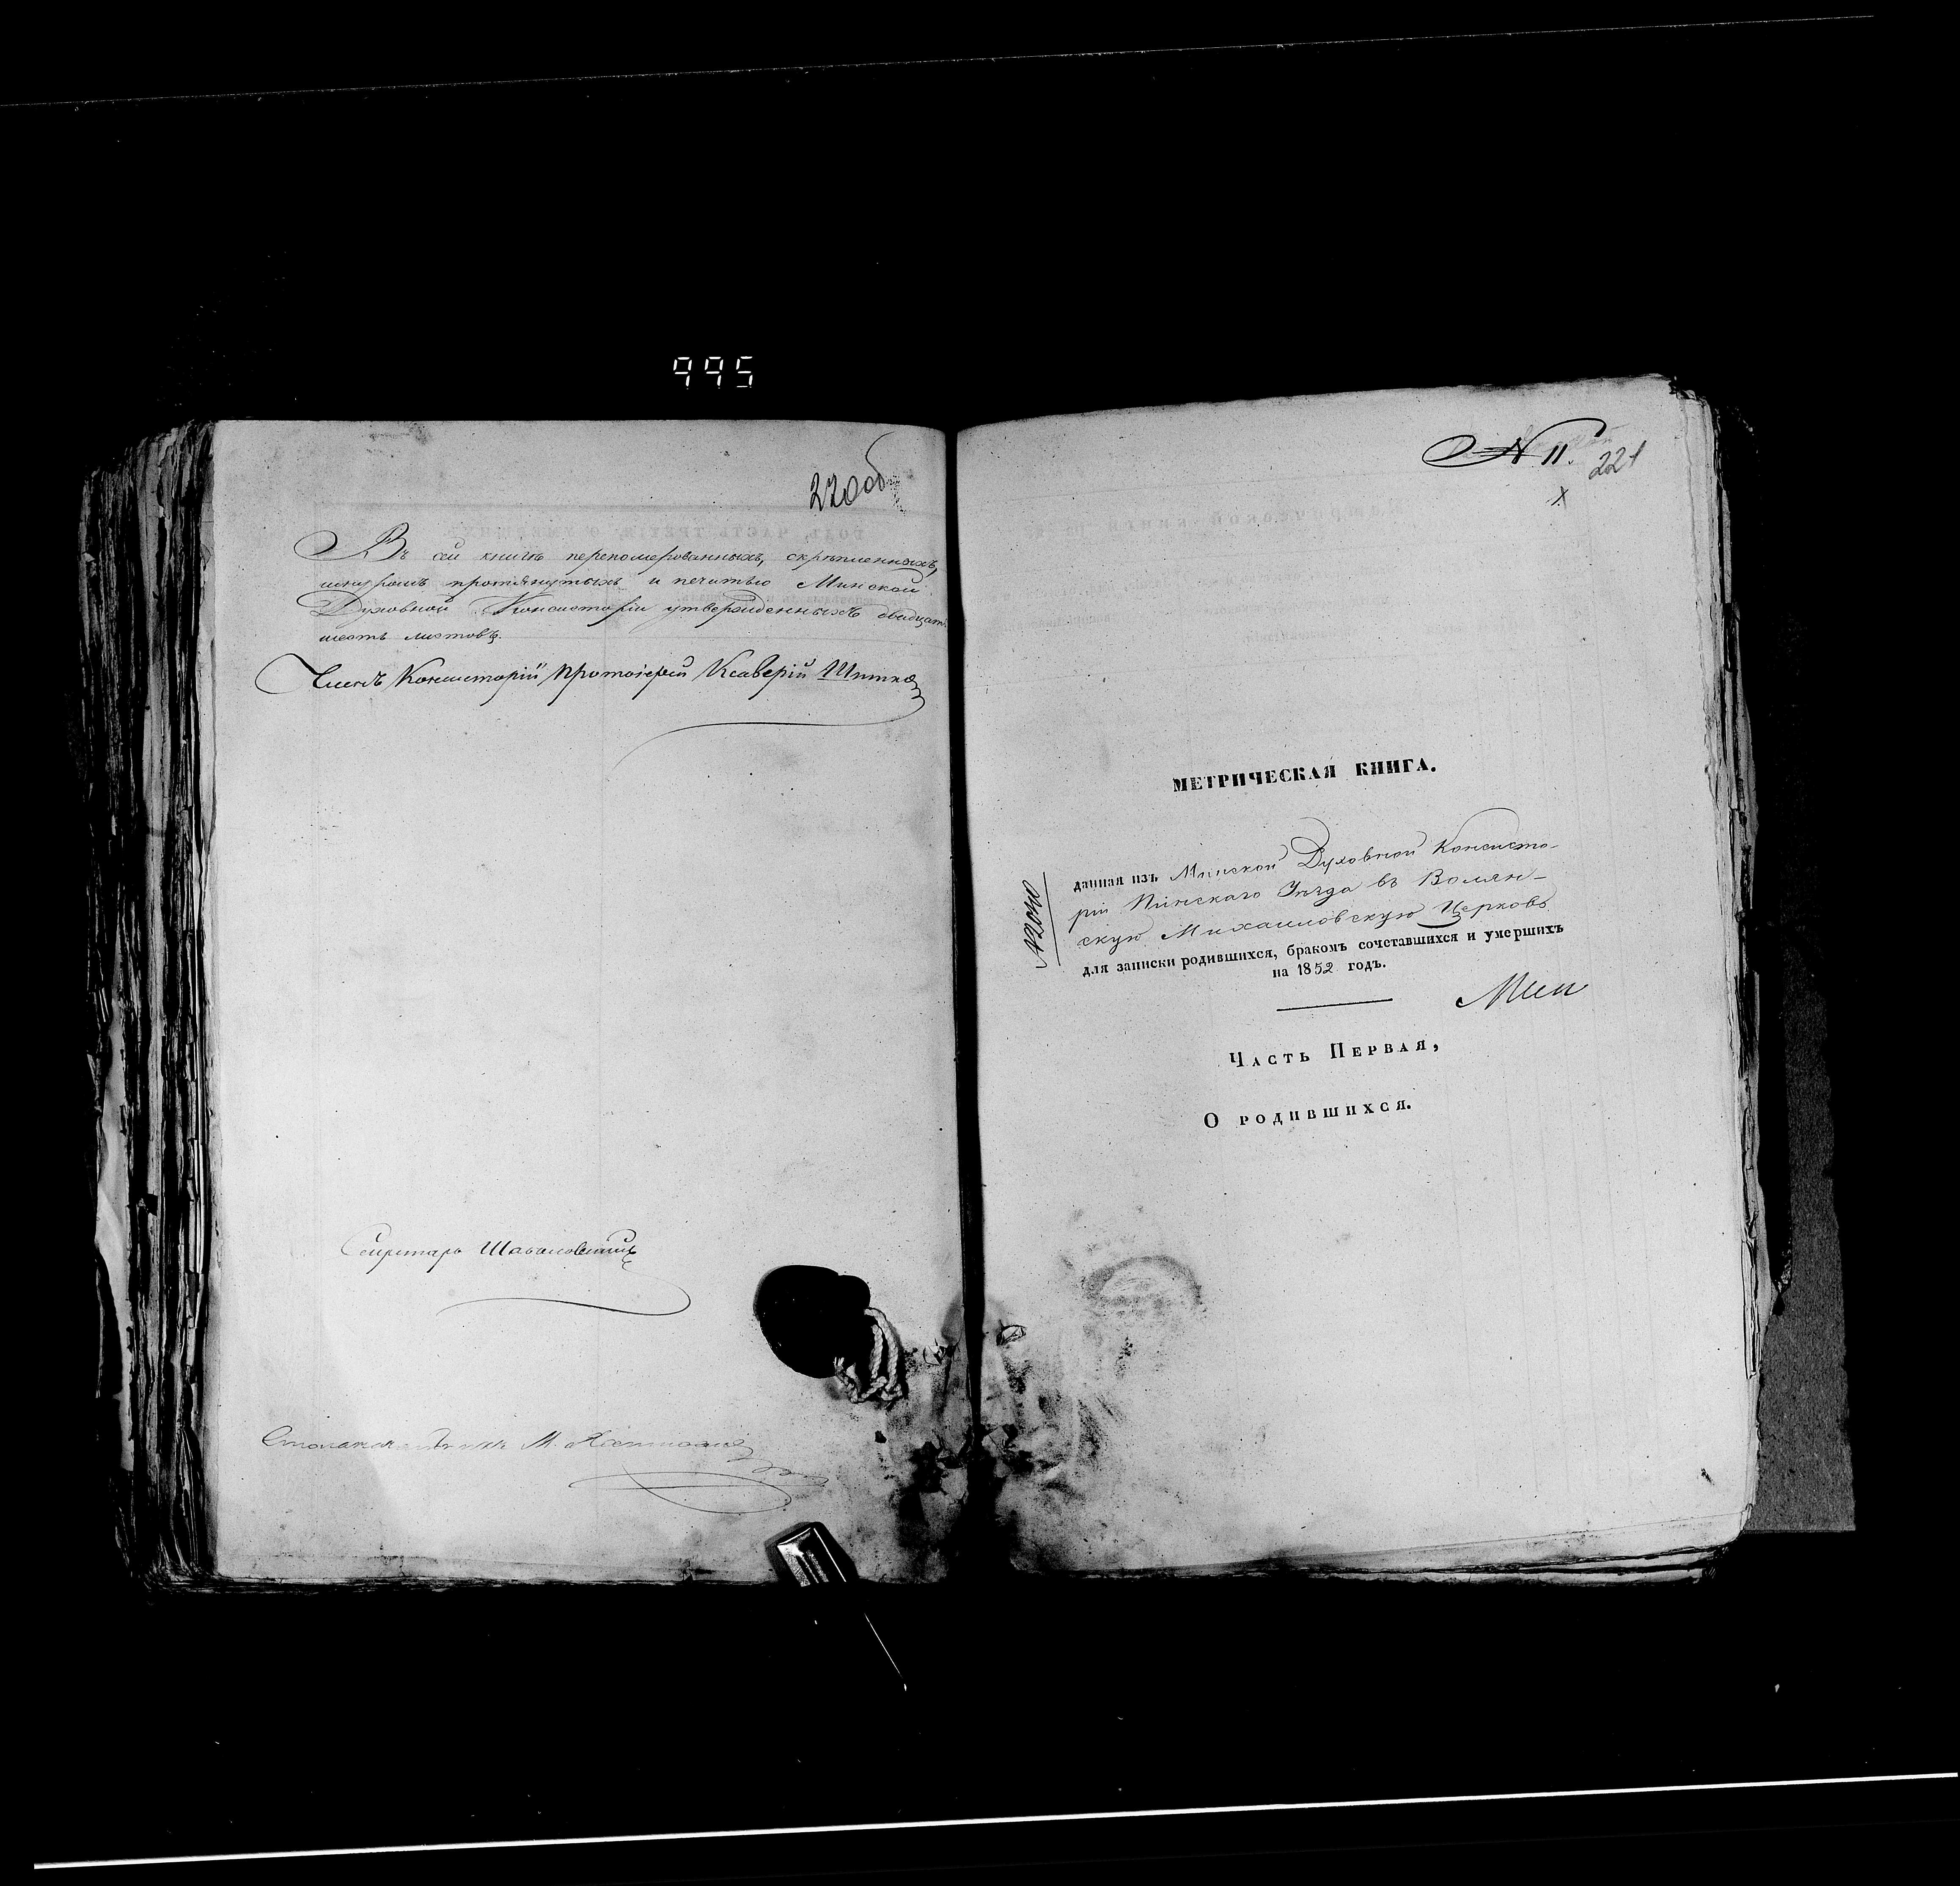 995
220об
Въ сей книгѣ перенумерованныхъ, скрѣпленныхъ,
шнуромъ протянутыхъ и печатью Минской
Духовной Консисторіи утвержденныхъ двадцать
шесть листовъ.
Членъ Консисторіи Протоіерей Ксаверій
Секретарь
М.
N 11.
221
х
МЕТРИЧЕСКАЯ КНИГА.
данная изъ Минской Духовной Консисто-
ріи Пинскаго Уѣзда въ Волян-
скую Михайловскую Церковь
для записки родившихся, бракомъ сочетавшихся и умерших
на 1852 годъ.
Мин
Часть Первая,
О родившихся.